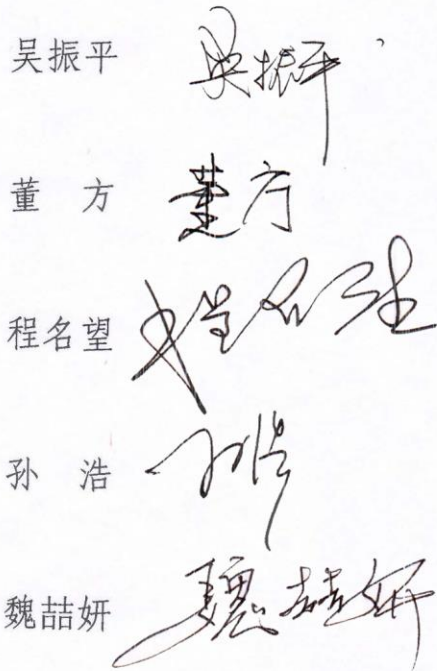 吴振平 吴振平
董 方 董方
程名望 程名望
孙 浩 孙浩
魏喆妍 魏喆妍